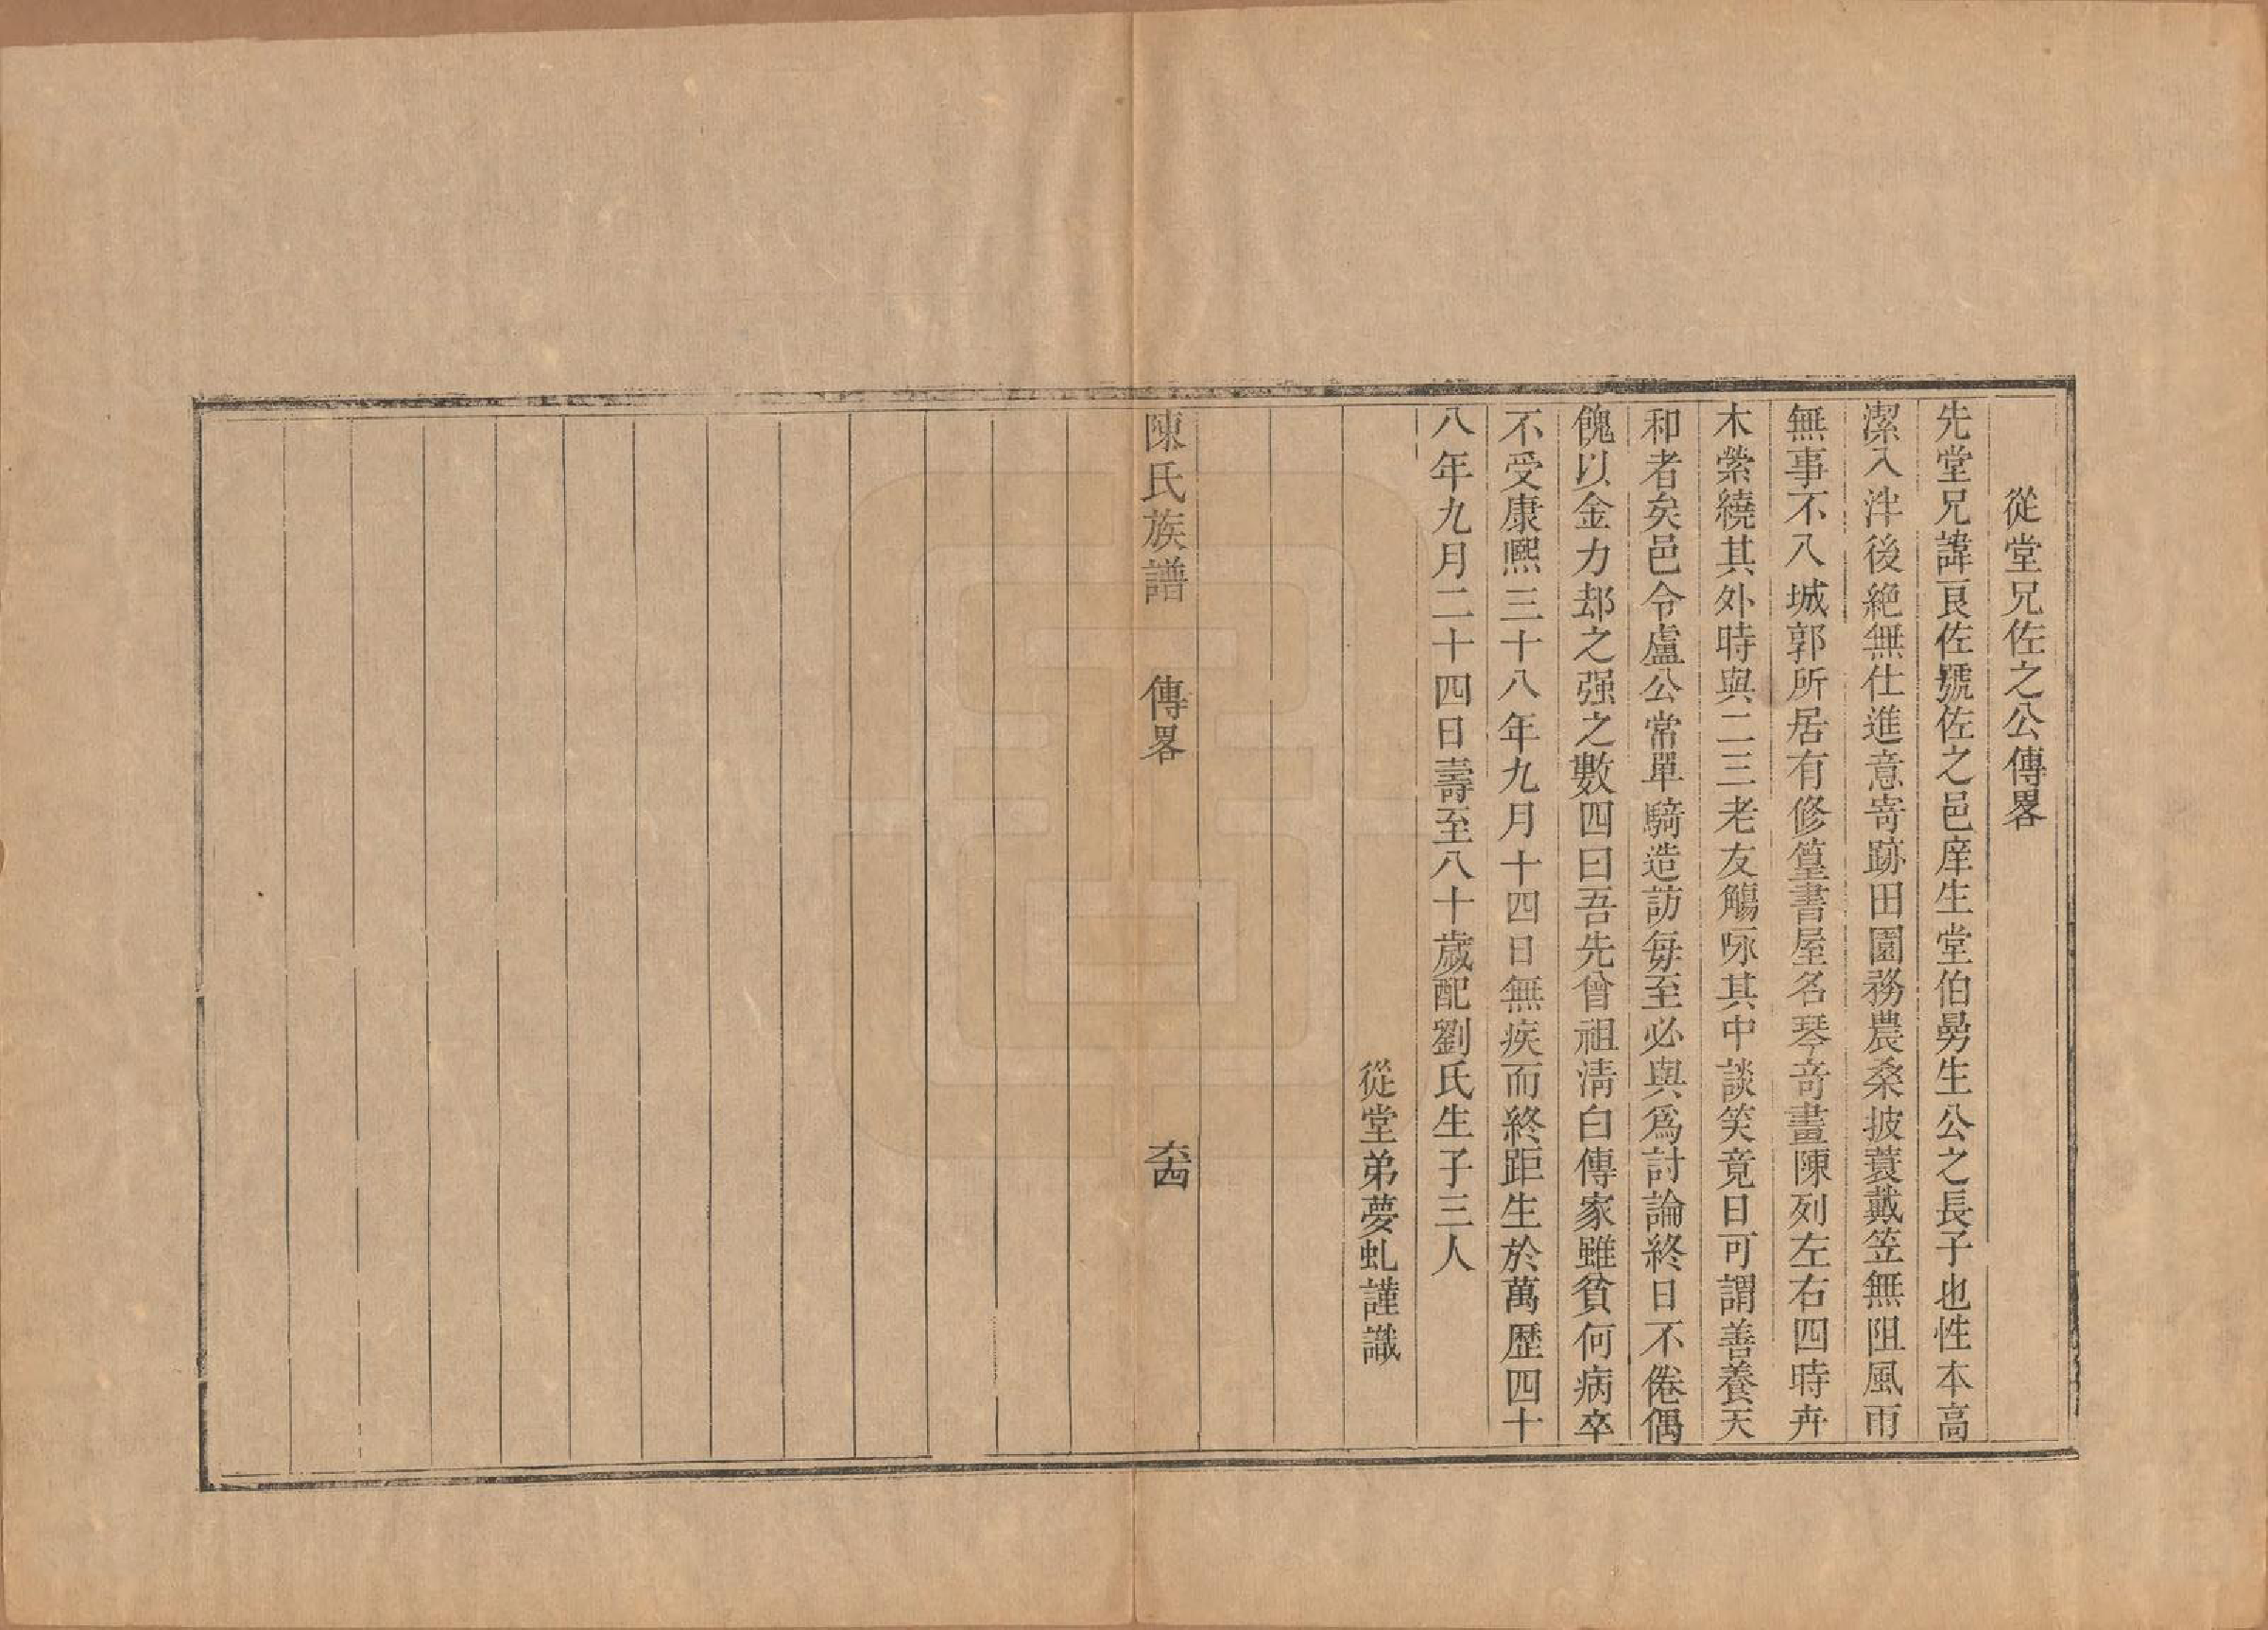 從堂兄佐之公傳畧
先堂兄諱良佐號佐之邑庠生堂伯昜生公之長子也性本高
潔入泮後絶無仕進意寄跡田園務農桑披蓑戴笠無阻風雨
無事不入城郭所居有修篁書屋名琴竒畫陳列左右四時卉
木縈繞其外時與二三老友觴咏其中談笑竟日可謂善養天
和者矣邑令盧公常單騎造訪每至必與爲討論終日不倦偶
餽以金力却之强之數四曰吾先曾祖淸白傳家雖貧何病卒
不受康熙三十八年九月十四日無疾而終距生於萬歷四十
八年九月二十四日壽至八十歲配劉氏生子三人
從堂弟夢虬謹識
陳氏族譜 傳畧 六十四